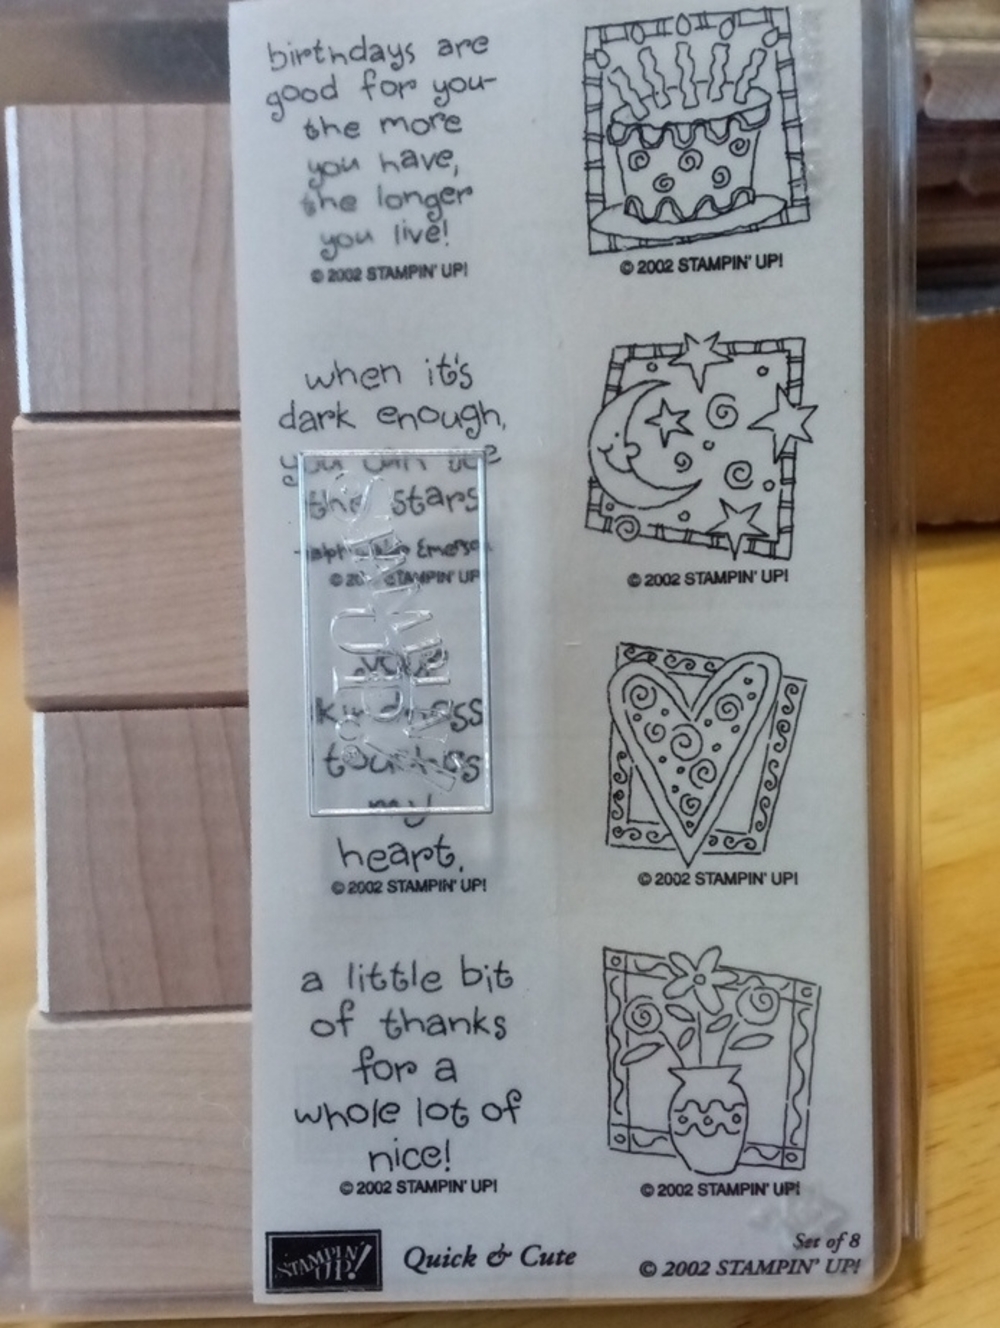 birthdays are
good for you-
the more
you have,
the longer
you live!
© 2002 STAMPIN' UP!
© 2002 STAMPIN' UP!
when it's
dark enough,
you can see
the stars
Emerson
© 2002 STAMPIN' UP
© 2002 STAMPIN' UP!
your
kindness
touches
my
heart.
© 2002 STAMPIN' UP!
© 2002 STAMPIN' UP!
a little bit
of thanks
for a
whole lot of
nice!
© 2002 STAMPIN' UP!
© 2002 STAMPIN' UP!
STAMPIN' UP!
STAMPIN' UP!
Quick & Cute
Set of 8
© 2002 STAMPIN' UP!